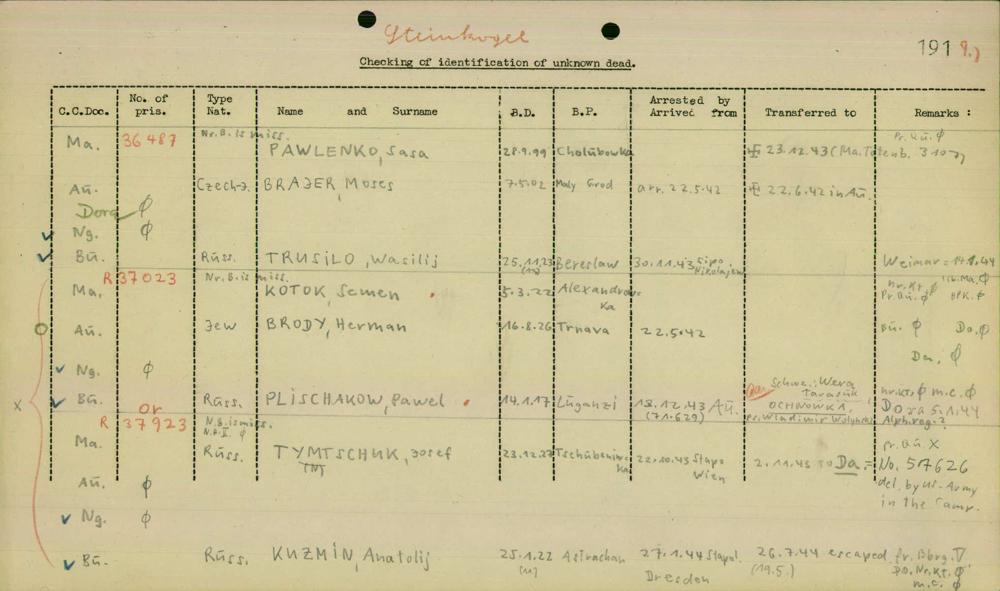 Steinkogel
191 9.)
Checking of identification of unknown dead.
C.C.Doc. No. of pris. Type Nat. Name and Surname B.D. B.P. Arrested by Arrived from Transferred to Remarks :
Ma. 36487 Nr.B. is miss. PAWLENKO, Sasa 28.9.99 Cholubowka 卐 23.12.43 (Ma. Totenb. 3107) Pr. Bü. ϕ
Aü. Czech-J. BRAJER, Moses 7.5.02 Maly Grod arr. 22.5.42 22.6.42 in Aü.
Dora ϕ
Ng. ϕ
Bü. Rüss. TRUSiLO, Wasilij 25.11.23 (12) Bereslaw 30.11.43 Sipo. Nikolajew Weimar = 14.1.44
R 37023 Nr.B. is miss.
Ma. KOTOK, Semen 5.3.22 Alexandrowka nr.Kt. ϕ Pr. Bü. ϕ
Aü. Jew BRODY, Herman 16.8.26 Trnava 22.5.42 Bü. ϕ Do. ϕ
Da. ϕ
Ng. ϕ
X Bü. Rüss. PLISCHAKOW, Pawel 14.1.17 Lüganzi 13.12.43 Aü. (71.629) Schwe.: Wera Tarasük, OCHNOWKA, Wladimir Wolynski nr.Kt. ϕ m.c. ϕ Dora 5.1.44 Alph.reg.?
or
R 37923 N.B. is miss.
Ma. Rüss. TYMTSCHUK, Josef 23.12.27 Tschübeniwka 22.10.43 Stapo Wien 2.11.43 to Da. = pr. Bü X No. 57626 del. by US-Army in the Camp.
Aü. ϕ
Ng. ϕ
Bü. Rüss. KUZMiN, Anatolij 25.1.22 (11) Astrachan 27.1.44 Stapol. Dresden 26.7.44 escaped (19.5.) Do. Nr.Kt. ϕ m.c. ϕ